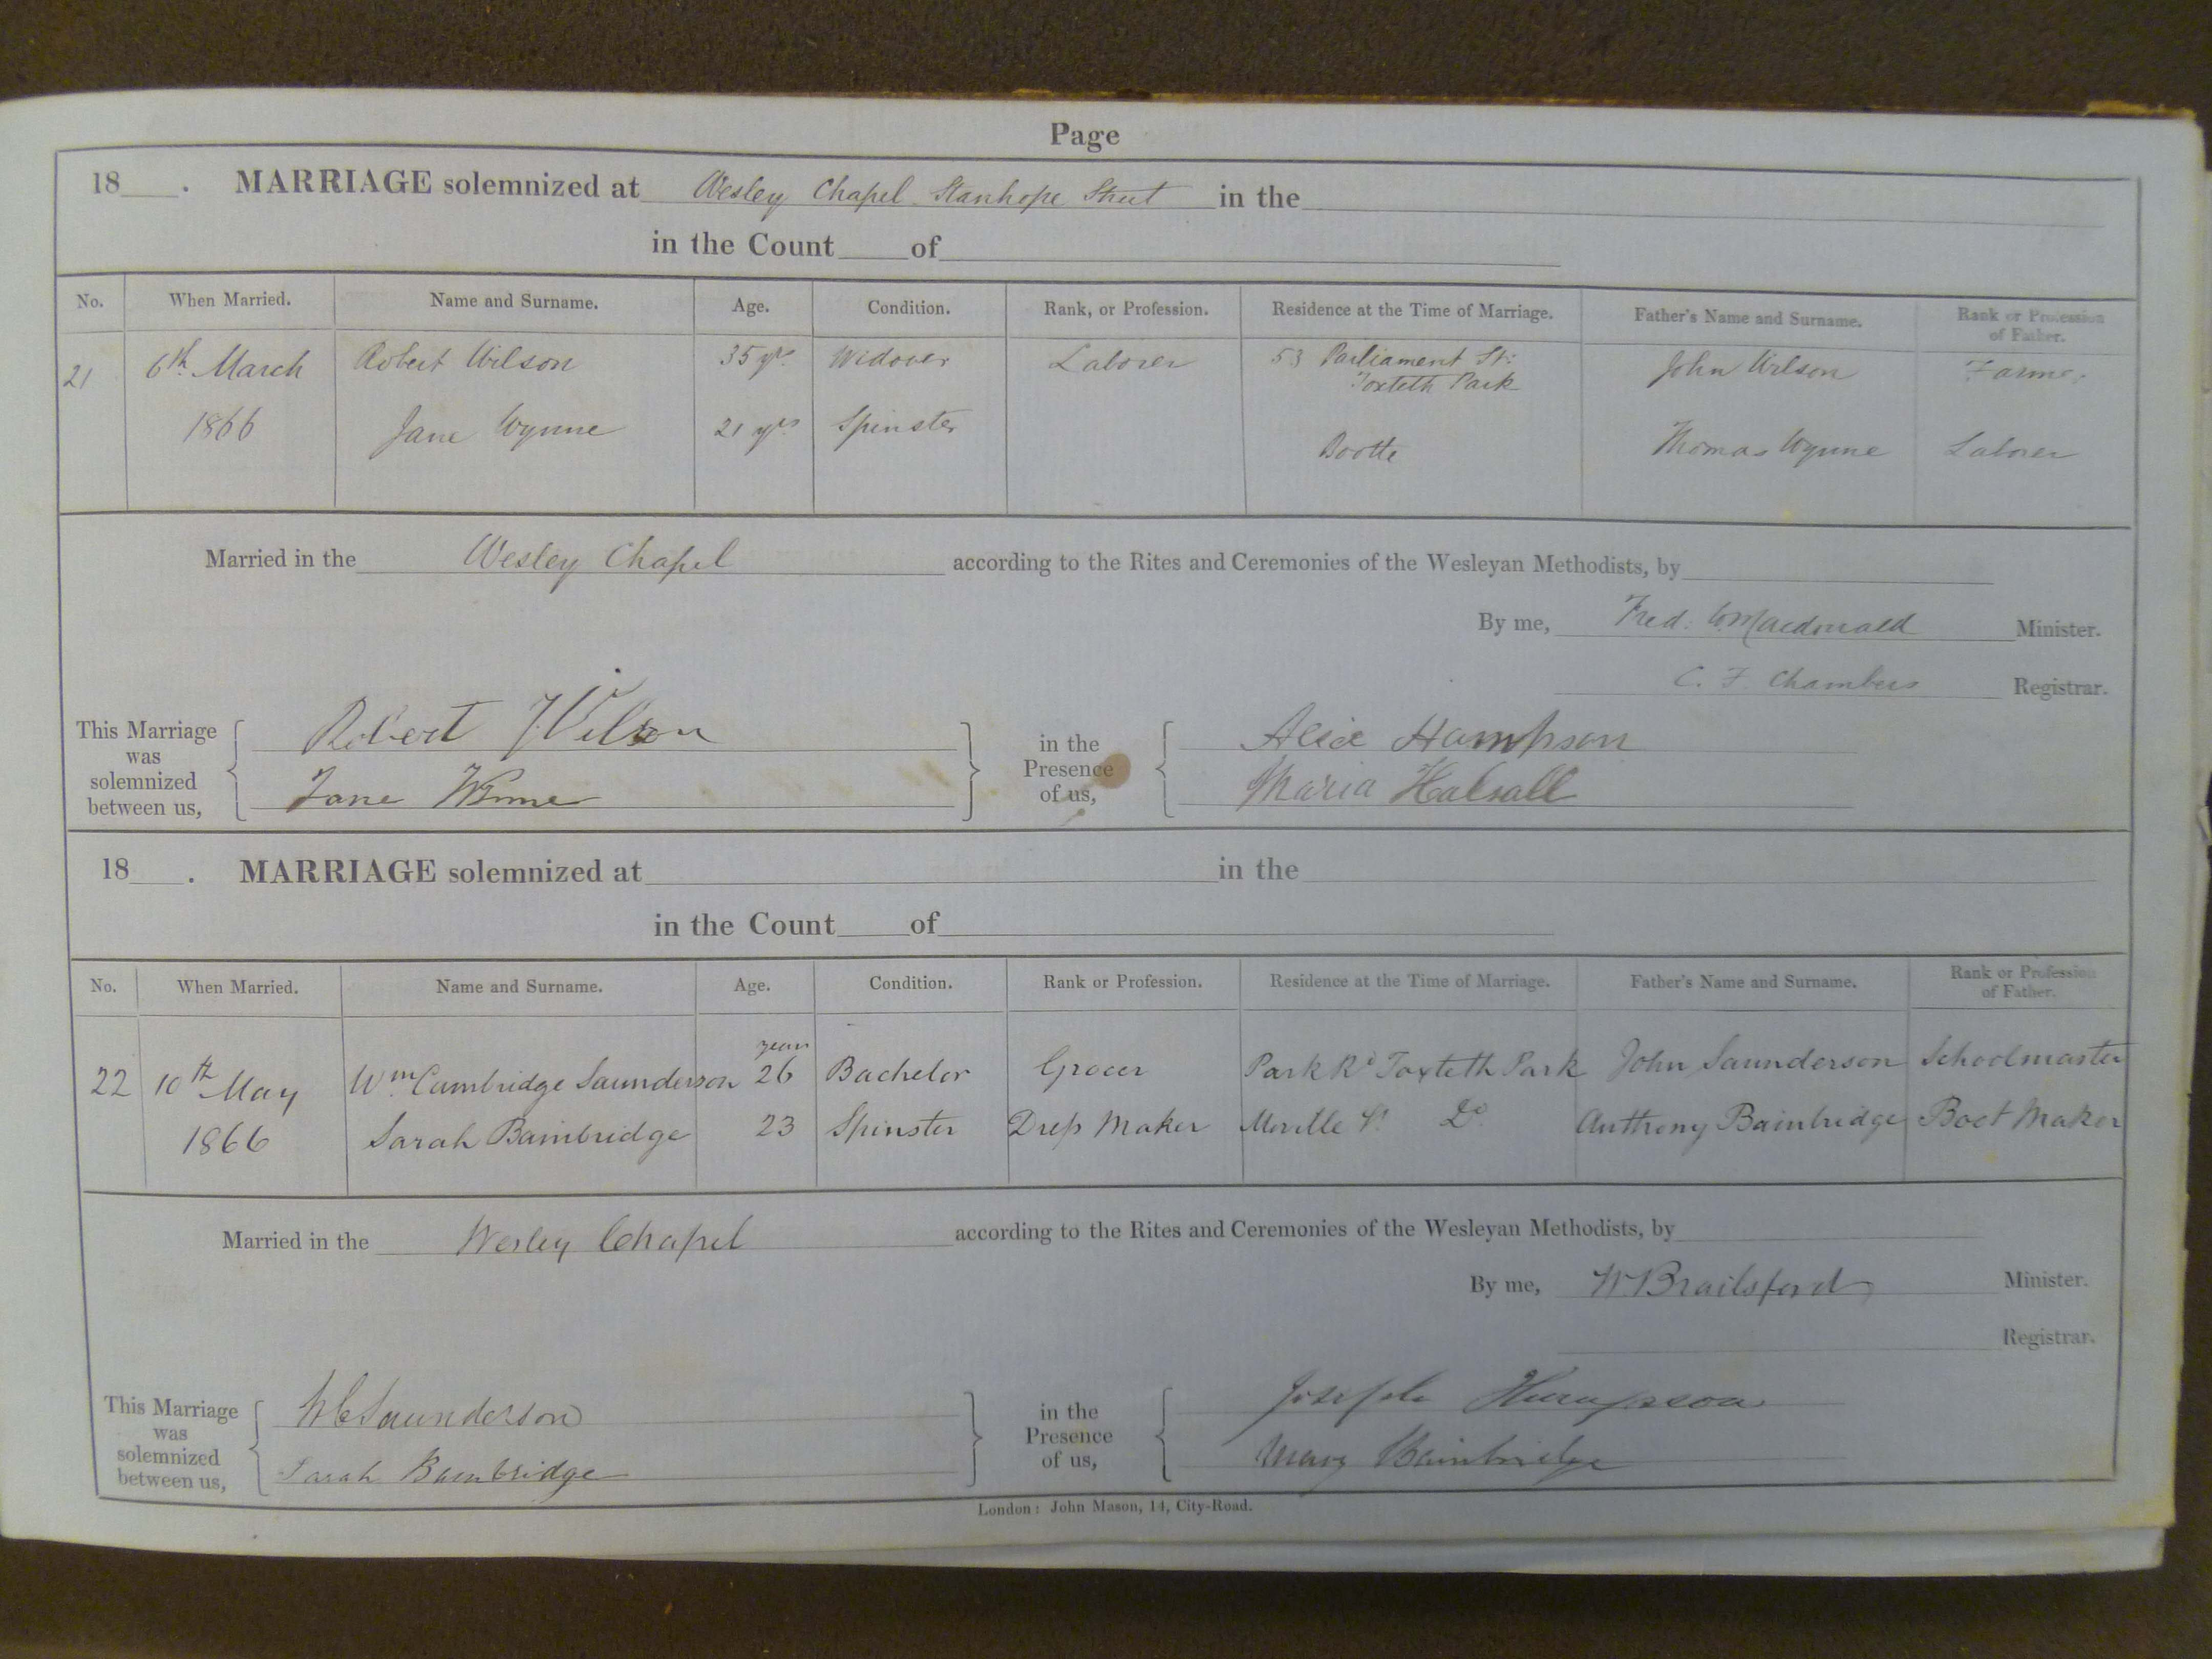 Page
18 . MARRIAGE solemnized at Wesley Chapel Stanhope Street in the
in the Count of
No. When Married. Name and Surname. Age. Condition. Rank, or Profession. Residence at the Time of Marriage. Father's Name and Surname. Rank or Profession of Father.
21 6th March Robert Wilson 35 yrs Widower Laborer 53 Parliament St: John Wilson Farmer
Toxteth Park
1866 Jane Wynne 21 yrs Spinster Bootle Thomas Wynne Laborer
Married in the Wesley Chapel according to the Rites and Ceremonies of the Wesleyan Methodists, by
By me, Fred. W. Macdonald Minister.
C. F. Chambers Registrar.
This Marriage was solemnized between us, Robert Wilson in the Presence of us, Alice Hampson
Jane Wynne Maria Halsall
18 . MARRIAGE solemnized at in the
in the Count of
No. When Married. Name and Surname. Age. Condition. Rank or Profession. Residence at the Time of Marriage. Father's Name and Surname. Rank or Profession of Father.
years
22 10th May Wm. Cambridge Saunderson 26 Bachelor Grocer Park Rd Toxteth Park John Saunderson Schoolmaster
1866 Sarah Bainbridge 23 Spinster Dress Maker St. Do. Anthony Bainbridge Boot Maker
Married in the Wesley Chapel according to the Rites and Ceremonies of the Wesleyan Methodists, by
By me, W. Brailsford Minister.
Registrar.
This Marriage was solemnized between us, W C Saunderson in the Presence of us, Joseph
Sarah Bainbridge Mary Bainbridge
London: John Mason, 14, City-Road.